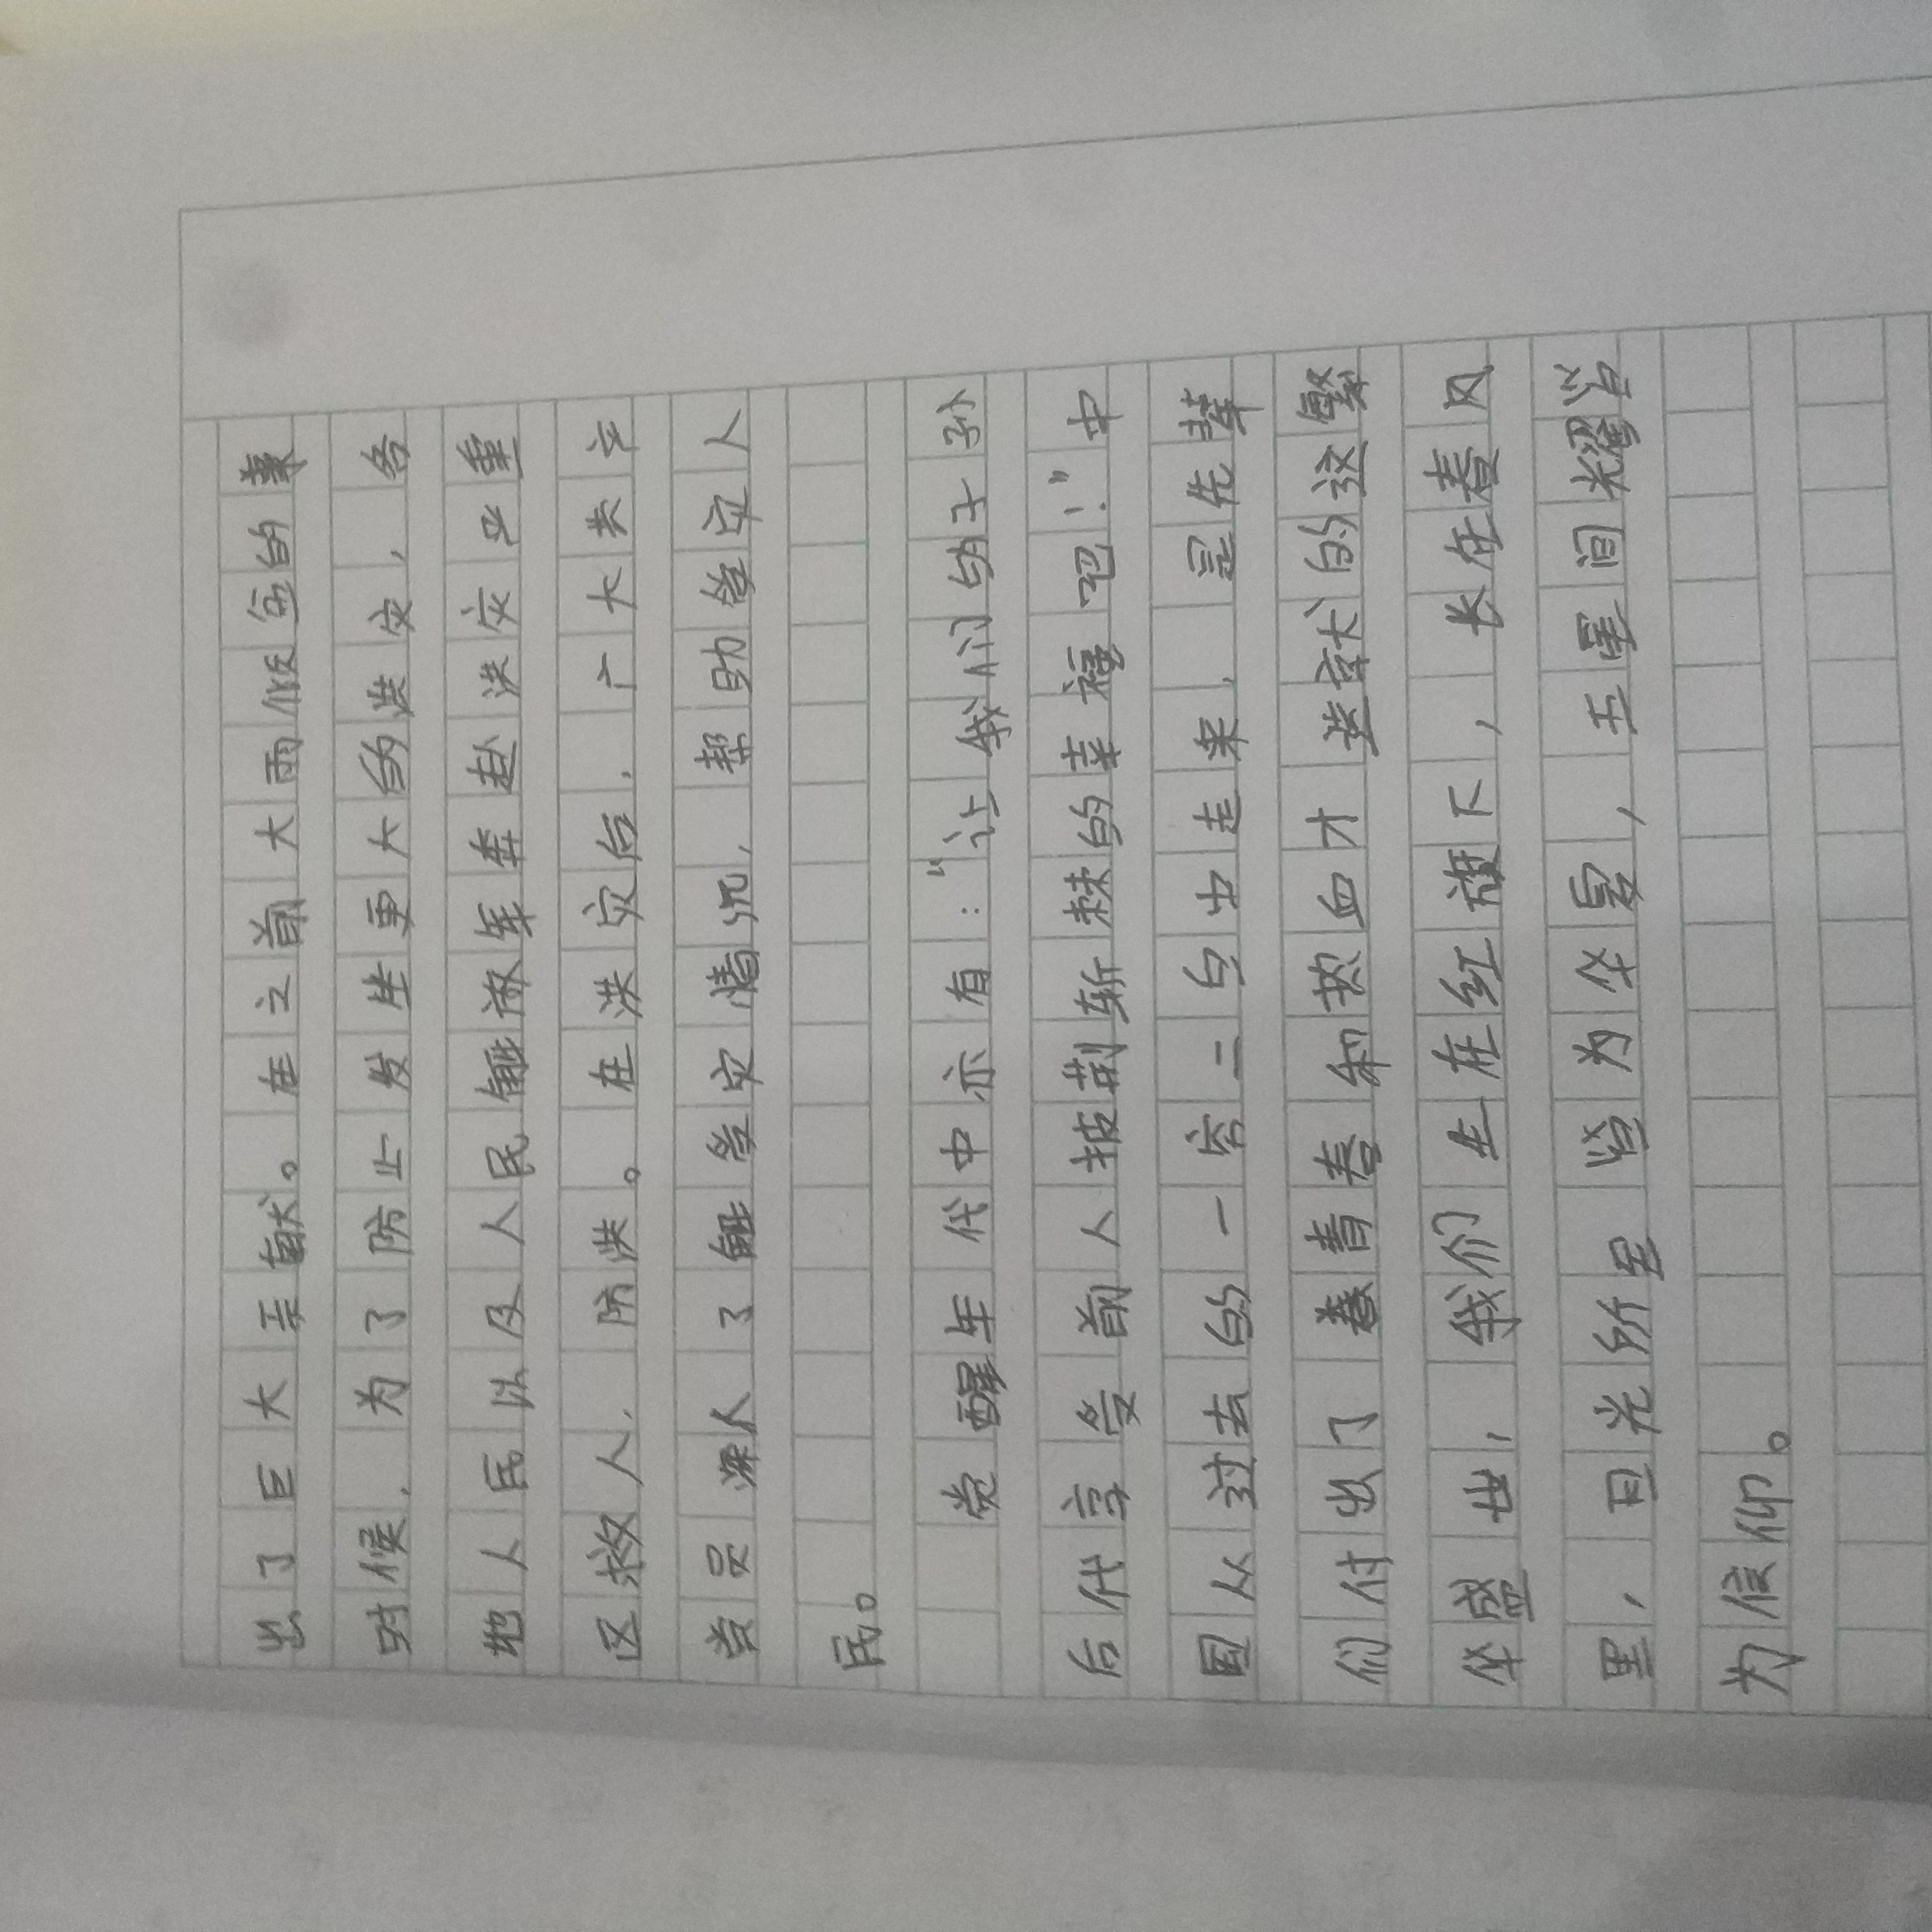 出了巨大贡献。在之前大雨倾盆的
时候,为了防止发生更大的洪灾,各
地人民以及人民解放军奔赴洪灾严重
区救人,防洪。在洪灾后,广大共产
党员深入了解受灾情况,帮助受灾人
民。
觉醒年代中亦有:“让我们的子孙
后代享受前人披荆斩棘的幸福吧!”中
国从过去的一穷二白中走来,是先辈
们付出了青春和热血才造就的这繁
华盛世,我们生在红旗下,长在春风
里,目光所至皆为华夏,五星闪耀皆
为信仰。